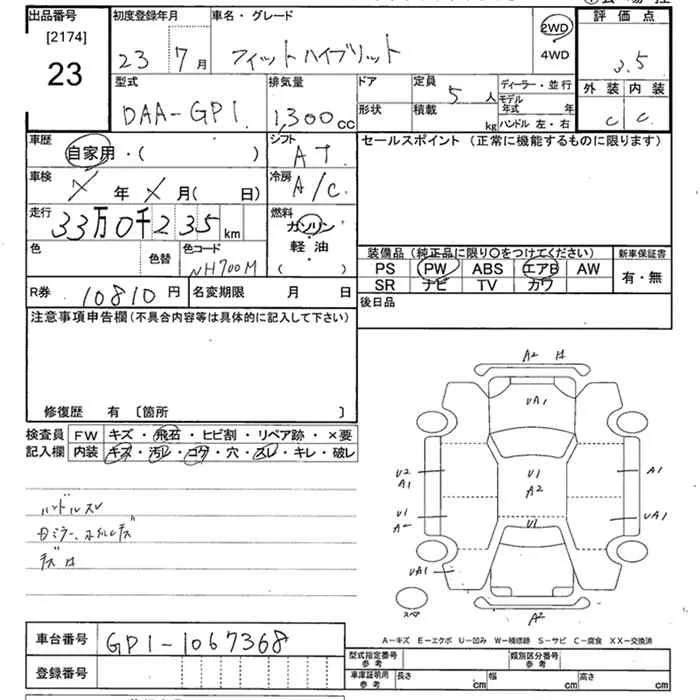 出品番号
[2174]
23
初度登録年月
23 7 月
車名・グレード
フィットハイブリット
2WD
・
4WD
評価点
3.5
外装 内装
C C
型式
DAA-GP1
排気量
1,300cc
ドア
形状
定員
5人
積載
kg
ディーラー・並行
モデル年式 年
ハンドル 左・右
車歴
自家用・( )
シフト
AT
セールスポイント（正常に機能するものに限ります）
車検
X年X月( 日)
冷房
A/C
走行
33万0千235km
燃料
ガソリン
・
軽油
( )
色
色替
色コード
NH700M
装備品（純正品に限り○をつけてください）
新車保証書
PS PW ABS エアB AW
SR ナビ TV カワ
有・無
R券 10810円
名変期限 月 日
後日品
注意事項申告欄(不具合内容等は具体的に記入して下さい)
修復歴 有〔箇所 〕
検査員
記入欄
FW キズ・飛石・ヒビ割・リペア跡・×要
内装 キズ・汚レ・コゲ・穴・スレ・キレ・破レ
ハンドルスレ
A2
UA1
U2
A1
U1
A2
A1
U1
A
U1
UA1
UA1
スペア
A2
A－キズ E－エクボ U－凹み W－補修跡 S－サビ C－腐食 XX－交換済
車台番号
GP1-1067368
登録番号
型式指定番号
参考
類別区分番号
参考
車庫証明用
参考
長さ cm
幅 cm
高さ cm